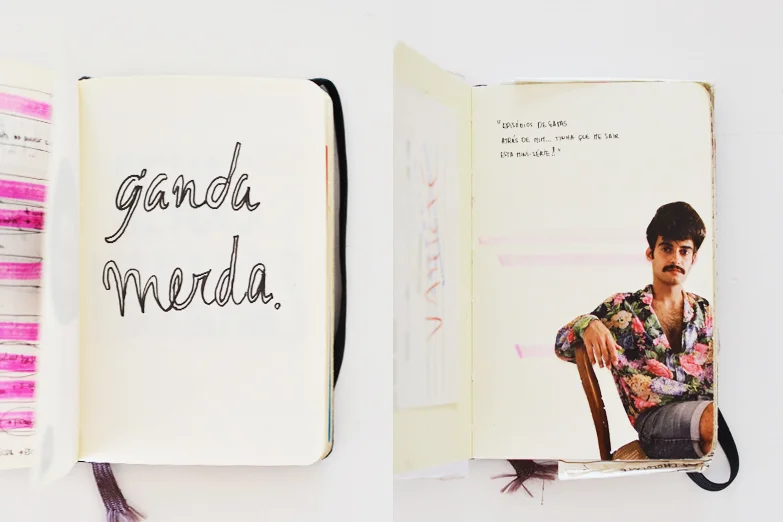 ganda
merda.
"EPISÓDIOS DE GAJAS
ATRÁS DE MIM... TINHA QUE ME SAIR
ESTA MINI-SÉRIE!"